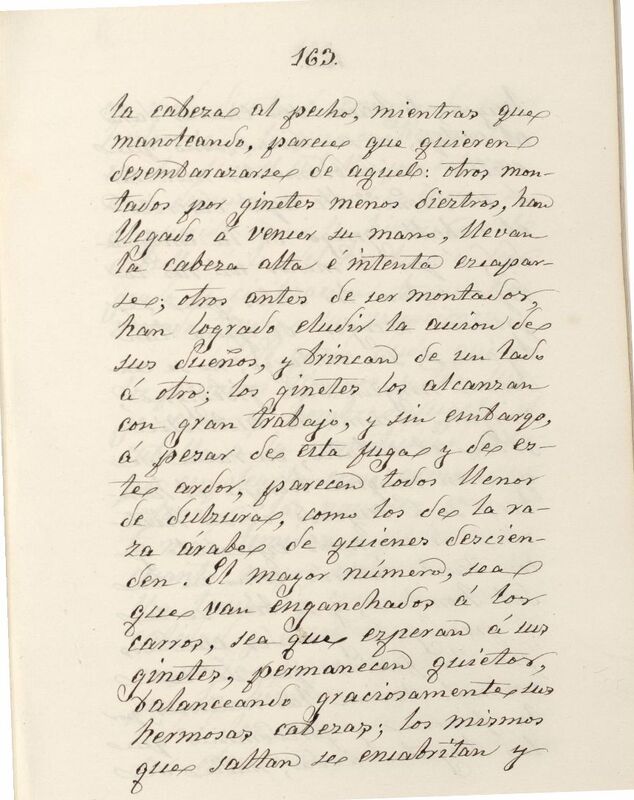 163.
la cabeza al pecho, mientras que
manoteando, parece que quieren
desembarazarse de aquel: otros mon-
tados por ginetes menos dieztros, han
llegado á vencer su mano, llevan
la cabeza alta é intenta escapar-
se; otros antes de ser montados,
han logrado eludir la accion de
sus dueños, y brincan de un lado
á otro; los ginetes los alcanzan
con gran trabajo, y sin embargo,
á pesar de esta fuga y de es-
te ardor, parecen todos llenos
de dulzura, como los de la ra-
za árabe de quienes descien-
den. El mayor número, sea
que van enganchados á los
carros, sea que esperan á sus
ginetes, permanecen quietos,
balanceando graciosamente sus
hermosas cabezas; los mismos
que saltan se encabritan y